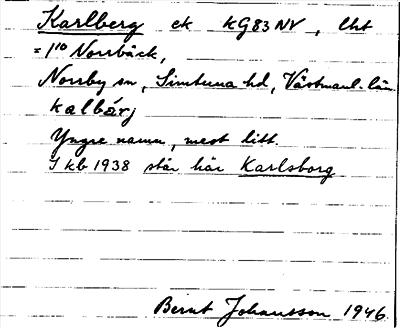 Karlberg ek kG83NV, lht
= 1/10 Norrbäck,
Norrby sn, Simtuna hd, Västmanl. län.
kalbárj
Yngre namn, mest litt.
I kb 1938 står här Karlsborg
Bernt Johansson 1946.